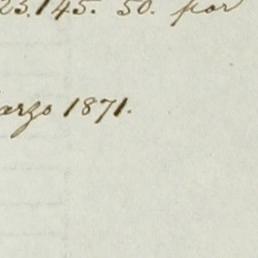 23.145.50. por
arzo 1871.